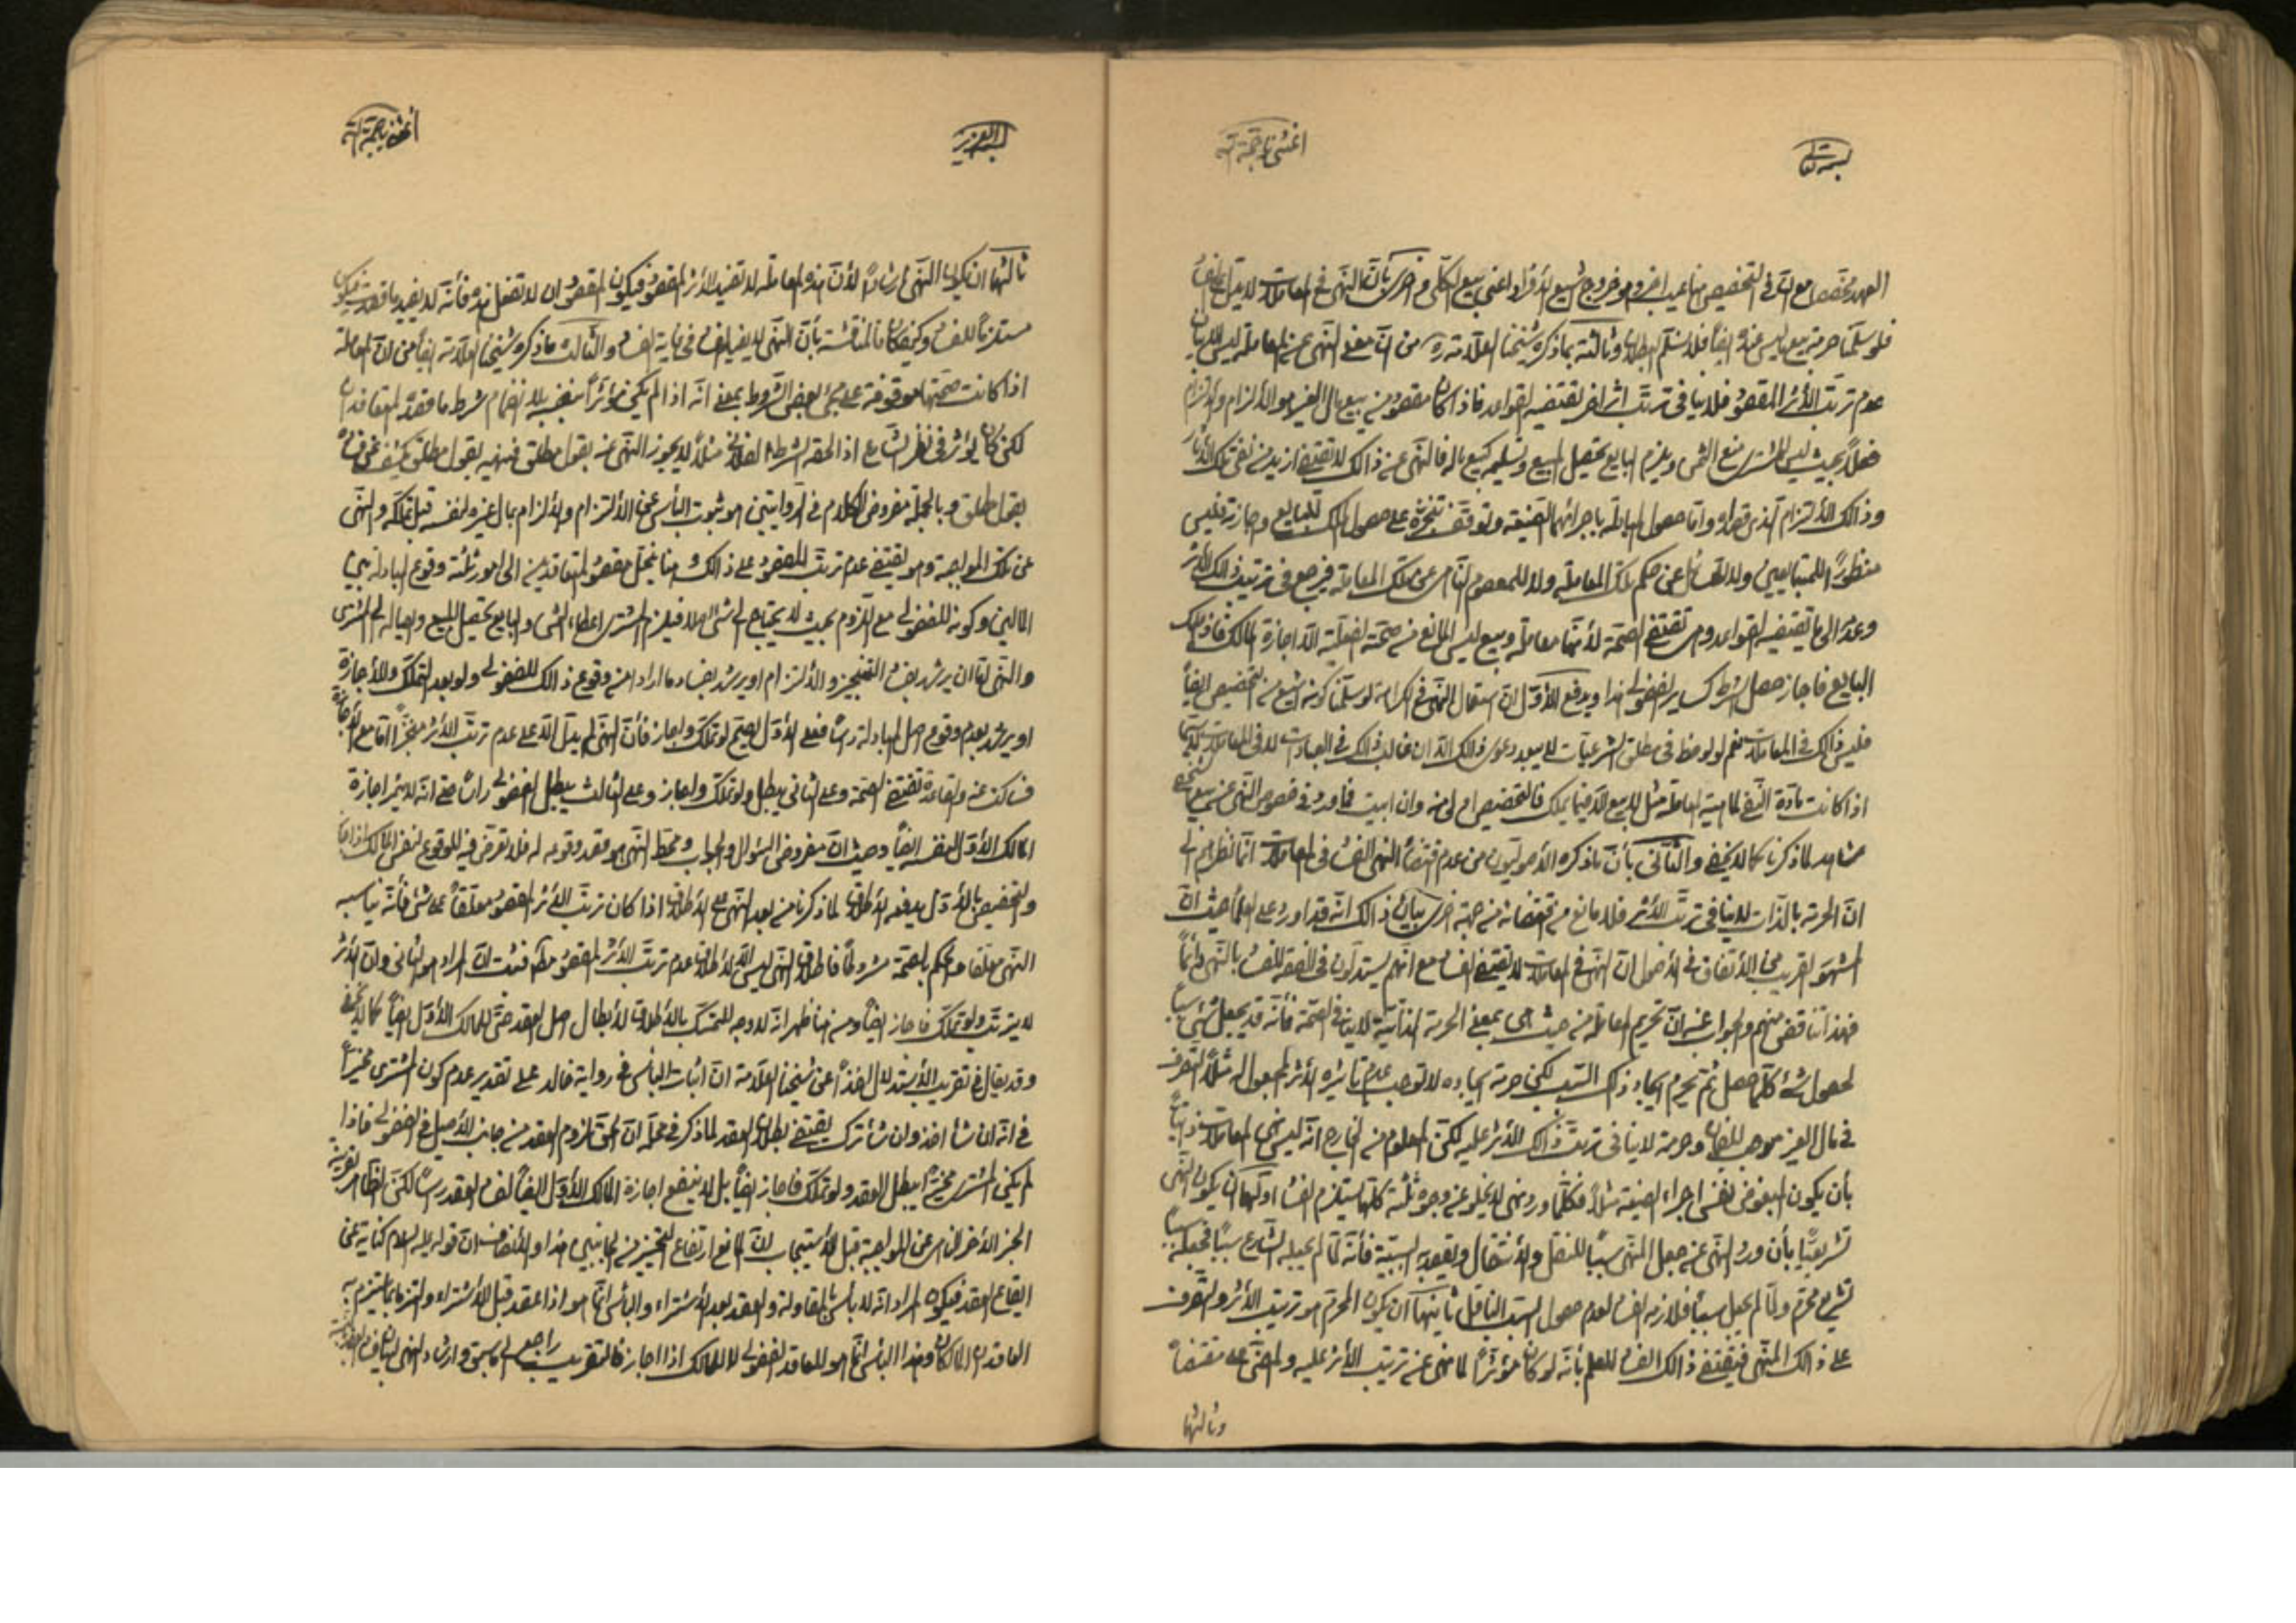 بسمه تعالى
أغثني يا حجة الله
العهد مخصصا مع ان في التخصيص هنا عيب اخر وهو خروج شيع الأفراد اعني بيع الكلي واخرى بأن النهي في المعاملات لا يدل على
فلو سلمنا حرمة بيع ما ليس عنده ايضا فلا نسلم البطلان وثالثة بما ذكره شيخنا العلامة ره من ان معنى النهي عن المعاملة ليس الا بيان
عدم ترتب الأثر المقصود فلا ينافي ترتب اثر اخر تقتضيه القواعد فاذا كان مقصوده من بيع مال الغير هو الألزام والألتزام
فعلا بحيث ليس للمشتري منع الثمن ويلزم البايع بتحصيل المبيع وتسليمه كبيع ماله فالنهي عن ذالك لا يقتضي ازيد من نفي تلك الأثار
وذالك الألتزام الذي قصداه واما حصول المبادلة باجرائهما الصيغة وتوقف تنجزه على حصول الملك للبايع واجازته فليس
منظورا للمتبايعين ولا للسائل عن حكم تلك المعاملة ولا للمعصوم الناهي عن تلك المعاملة فيرجع في ترتيب ذالك الأثر
وعدمه الى ما تقتضيه القواعد وهي تقتضي الصحة لأنها معاملة وبيع ليس المانع من صحته الفعلية الا اجازة المالك فاذا ملك
البايع فاجاز حصل الشرط كساير الفضولي هذا ويدفع الأول ان استعمال النهي في الكراهة لو سلمنا كونه اشيع من التخصيص ايضا
فليس ذالك في المعاملات نعم لو لوحظ في مطلق الشرعيات لا يبعد دعوى ذالك الا ان غالب ذالك في العبادات لا في المعاملات لا سيما
اذا كانت بادة النفي لماهية المعاملة مثل لا بيع الا فيما يملك فالتخصيص اولى منه وان ابيت فما ورد في خصوص النهي عن بيع
شاهد لما ذكرنا كما لا يخفى والثاني بأن ما ذكره الأصوليون من عدم اقتضاء النهي الفساد في المعاملات انما نظرهم الى
ان الحرمة بالذات لا ينافي ترتب الأثر فلا مانع من اقتضائه من جهة اخرى بيان ذالك انه قد اورد على العلماء حيث ان
المشهور القريب من الأتفاق في الأصول ان النهي في المعاملات لا يقتضي الفساد مع انهم يستدلون في الفقه للفساد بالنهي دائما
فهذا تناقض منهم والجواب عنه ان تحريم المعاملة من حيث هي بمعنى الحرمة الذاتية لا ينافي الصحة فأنه قد يجعل شيئ سببا
لحصول شئ كلما حصل ثم يحرم ايجاد ذالك السبب لكن حرمة ايجاده لا توجب عدم تاثيره الأثر المجعول له مثلا التصرف
في مال الغير موجب للضمان وحرمته لا ينافي ترتب ذالك الأثر عليه لكن المعلوم من الخارج انه ليس في المعاملات
بأن يكون المبغوض نفس اجراء الصيغة مثلا فكلما ورد نهي لا يخلو عن وجوه ثلثة كلها يستلزم الفساد اولها ان يكون النهي
تشريعيا بأن ورد النهي عن جعل المنهي سببا للنقل والأنتقال ويقصد السببية فأنه لما لم يجعله الشارع سببا فجعله سببا
تشريع محرم ولما لم يجعل سببا فلازمه الفساد لعدم حصول السبب الناقل ثانيها ان يكون المحرم هو ترتيب الأثر والتصرف
على ذالك المنهي فيقتضي ذالك الفساد للعلم بأنه لو كان مؤثرا لما نهى عن ترتيب الأثر عليه
وثالثها
أغثني يا حجة الله
ثالثها ان يكون النهي ارشادا لأن هذه المعاملة لا تفيد الأثر المقصود فيكون المقصود ان لا تفعل هذه فأنه لا يفيد ما قصدت فيكون
مستلزما للفساد وكيف كان فالمناقشة بأن النهي لا يفيد الفساد في غاية الفساد والثالث ما ذكره شيخنا العلامة ايضا من ان المعاملة
اذا كانت صحتها موقوفة على مجئ بعض الشروط بمعنى انه اذا لم يكن مؤثرا بنفسه بلا انضمام شرط ما قصده المتعاقدان
لكن كان يؤثر في نظر الشارع اذا لحقه الشرط الفلاني مثلا لا يجوز النهي عنه بقول مطلق فنهيه بقول مطلق يكشف عن فساده
بقول مطلق وبالجملة مفروض الكلام في الروايتين هو ثبوت البأس عن الألتزام والألزام بمال غيره لنفسه قبل تملكه والنهي
عن تلك المواجبة وهو يقتضي عدم ترتب المقصود على ذالك وهنا ينحل مقصود المتعاقدين الى امور ثلثة وقوع المبادلة بين
المالين وكونه للفضولي مع اللزوم بحيث لا يحتاج الى شئ اصلا فيلزم المشتري اعطاء الثمن والبايع تحصيل المبيع وايصاله الى المشتري
والنهي اما ان يرشد بفساد التنجيز والألتزام او يرشد بفساد ما ارادا من وقوع ذالك للفضولي ولو بعد التملك والأجازة
او يرشد بعدم وقوع اصل المبادلة رأسا فعلى الأول يصح لو تملك واجاز فأن النهي لم يدل الا على عدم ترتب الأثر منجزا اما مع الأجازة
فساكت عنه والقاعدة تقتضي الصحة وعلى الثاني يبطل ولو تملك واجاز وعلى الثالث يبطل الفضولي رأسا حتى انه لا يثمر اجازة
المالك الأول لنفسه ايضا وحيث ان مفروض السؤال والجواب ومحط النهي هو قصد وقوعه له فلا تعرض فيه للوقوع لنفس المالك اذا اجاز
والتخصيص بالأول يدفعه الأطلاق لما ذكرنا من بعد النهي على الأطلاق اذا كان ترتب الأثر المقصود معلقا على شئ فأنه يناسبه
النهي معلقا والحكم بالصحة مشروطا فاطلاق النهي ليس الا لأطلاق عدم ترتب الأثر المقصود مطلقا فثبت ان المراد هو الثاني وان الأثر
لا يترتب ولو تملك فاجاز ايضا ومن هنا ظهر انه لا وجه للتمسك بالأطلاق لأبطال اصل العقد حتى للمالك الأول ايضا كما لا يخفى
وقد يقال في تقريب الأستدلال اخذا عن شيخنا العلامة ان اثبات البأس في رواية خالد على تقدير عدم كون المشتري مخيرا
في انه ان شاء اخذ وان شاء ترك يقتضي بطلان العقد لما ذكر في محله ان الحق لزوم العقد من جانب الأصيل في الفضولي فاذا
لم يكن المشتري مخيرا يبطل العقد ولو تملك فاجاز ايضا بل لا ينفع اجازة المالك الأول ايضا لفساد العقد رأسا لكن الظاهر بقرينة
الخبر الأخر الناهي عن المواجبة قبل الأستيجاب ان المانع ارتفاع التخيير من الجانبين هذا والأنصاف ان قوله عليه السلام كناية عن
ايقاع العقد فيكون المراد انه لا بأس بالمقاولة والعقد بعد الأشتراء والبأس انما هو اذا عقد قبل الأشتراء والتزما بما يلتزم به
العاقدان المالكان وهذا البأس انما هو للعاقد الفضولي لا للمالك اذا اجاز فالتقريب راجع الى ما سبق